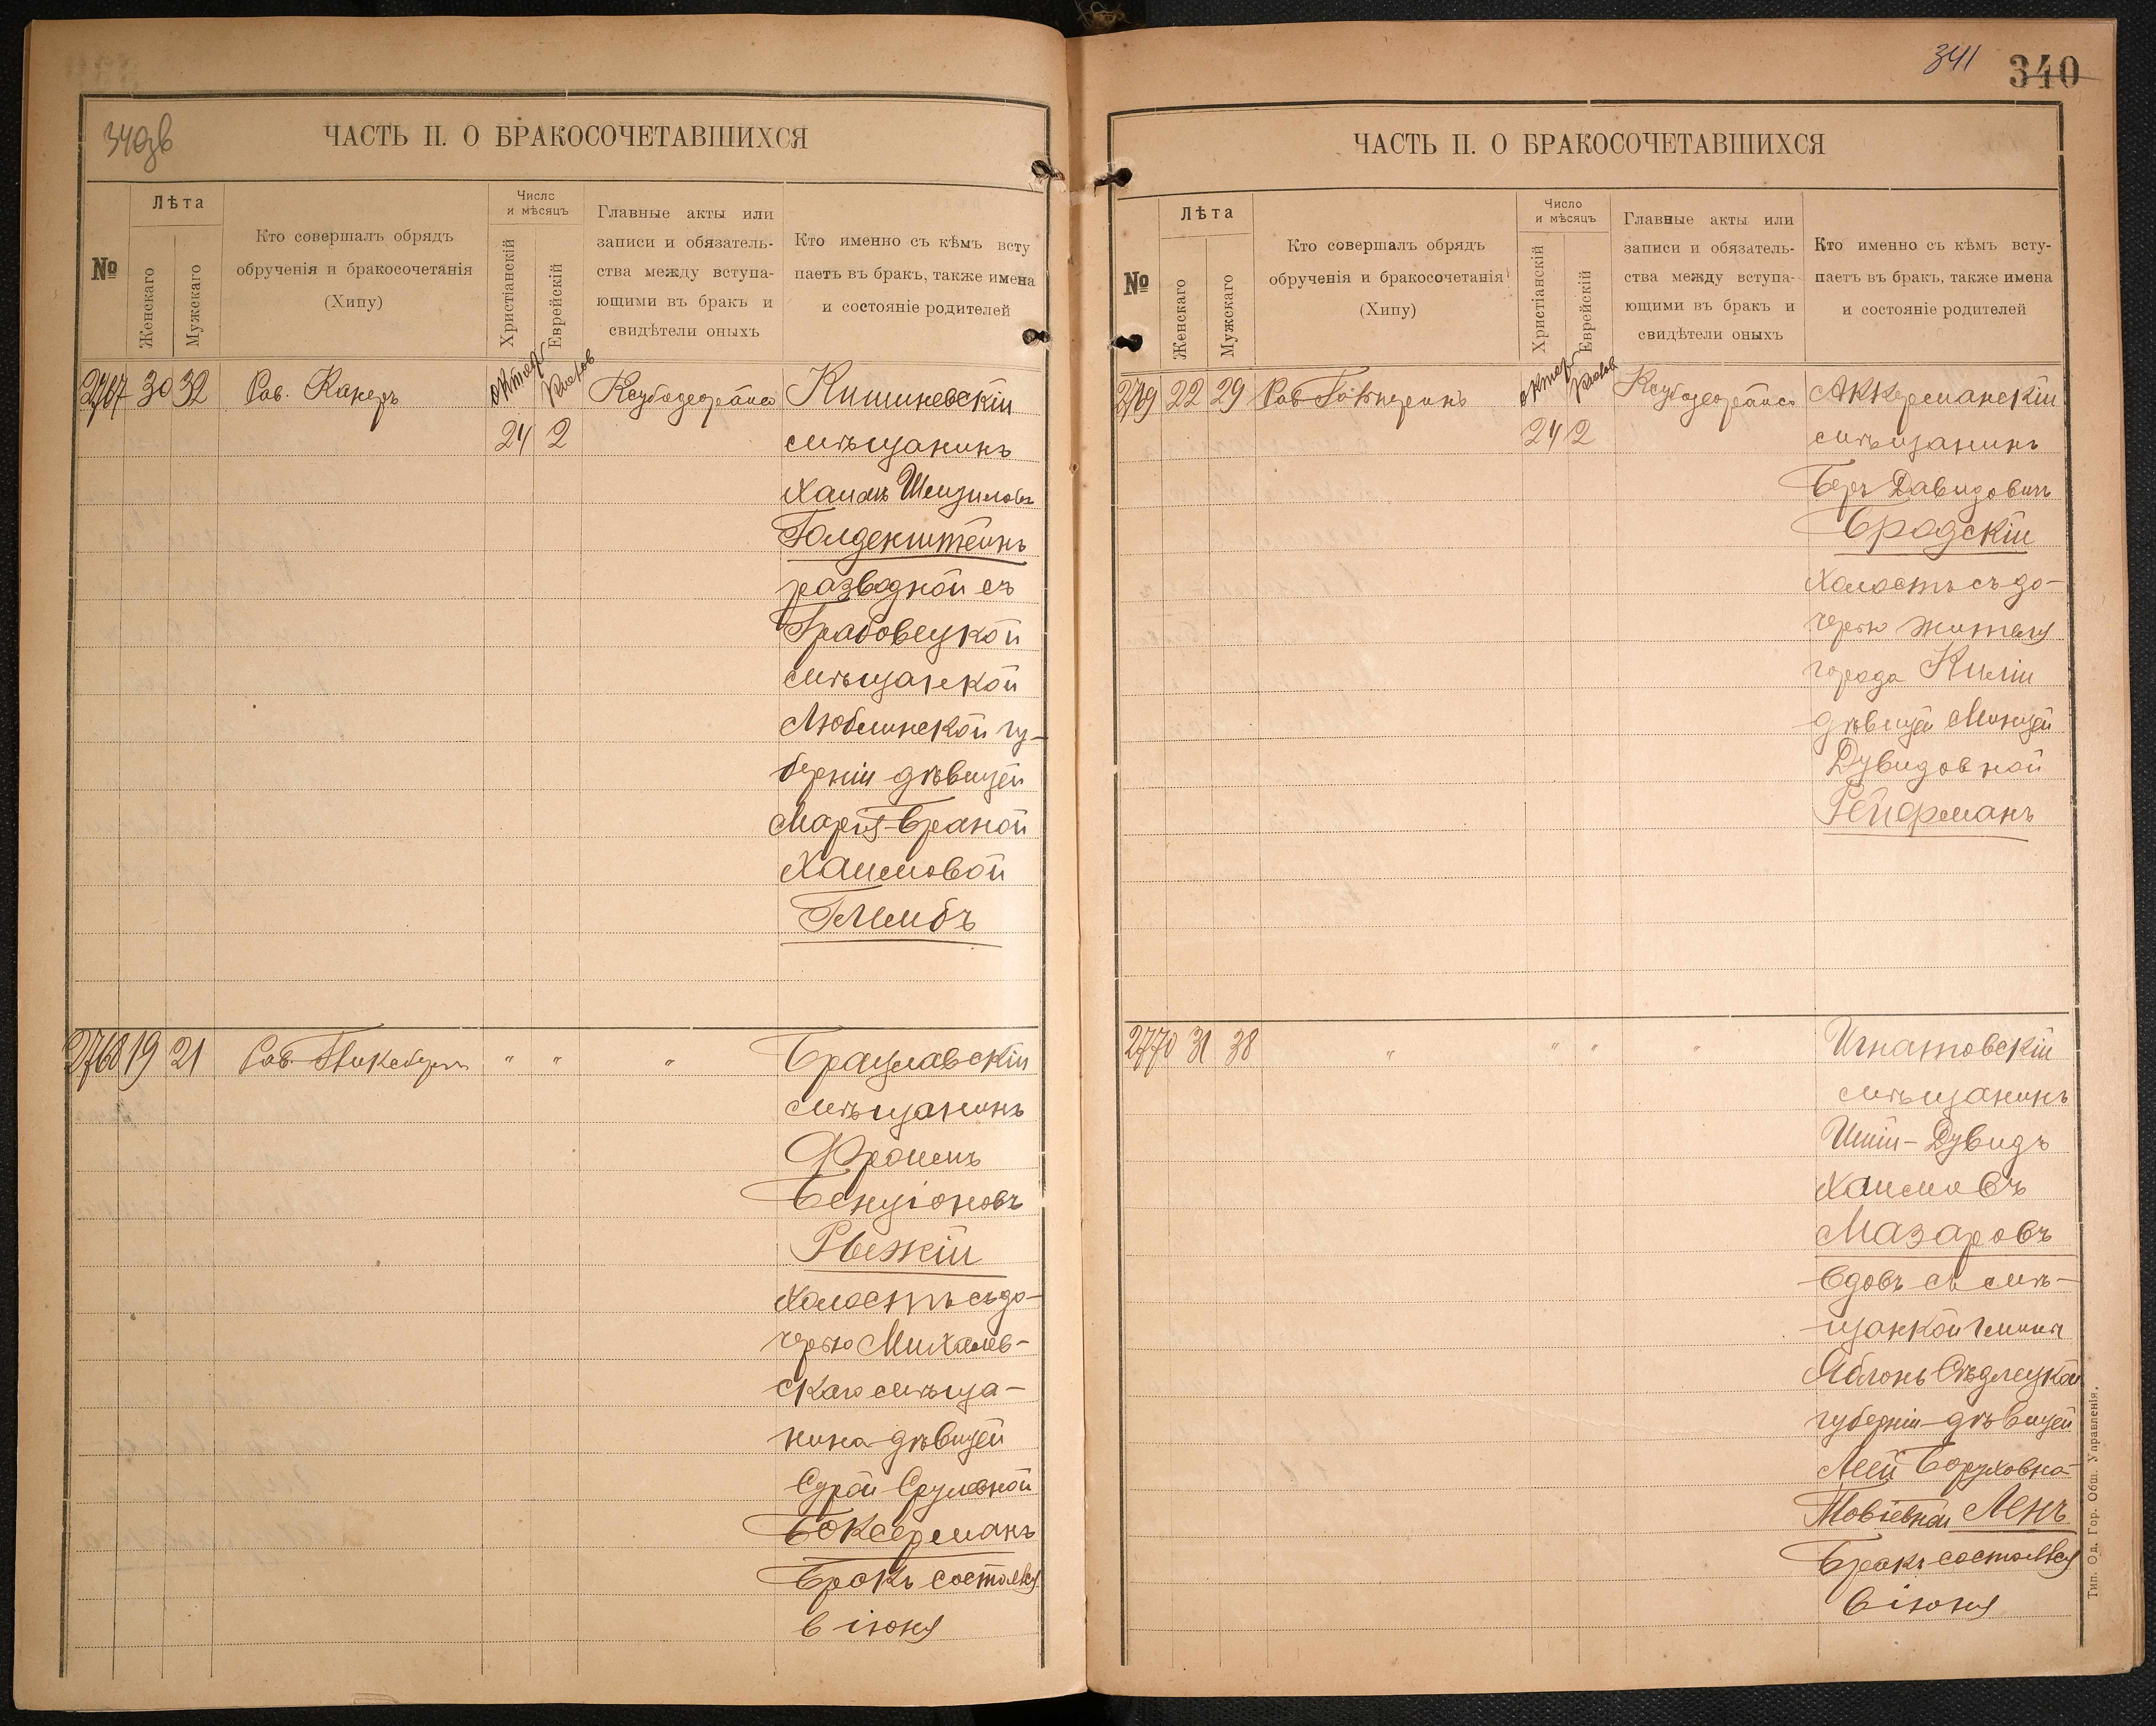 340зв
ЧАСТЬ II. О БРАКОСОЧЕТАВШИХСЯ
№
Лѣта
Женскаго
Мужскаго
Кто совершалъ обрядъ
обрученія и бракосочетанія
(Хипу)
Число
и мѣсяцъ
Христіанскій
Еврейскій
Главные акты или
записи и обязатель-
ства между вступа-
ющими въ бракъ и
свидѣтели оныхъ
Кто именно съ кѣмъ всту
паетъ въ бракъ, также имена
и состояніе родителей
2767 30 32 Рав. Канеръ октяб 24 2 Кишиневскій
мѣщанинъ
Хаимъ
Голденштейнъ
разводной съ
Грабовецкой
мѣщанской
Люблинской гу-
берніи дѣвицей
Марія-Браной
Хаимовой
Глимбъ
2768 19 21 Рав. " " " Брацлавскій
мѣщанинъ
Фроимъ
Бенціоновъ
Рыжій
холостъ съ до-
черью Михалев-
скаго мѣща-
нина дѣвицей
Сурой Срулевной
Боксерманъ
Бракъ состоялся
6 іюня
341
340
ЧАСТЬ II. О БРАКОСОЧЕТАВШИХСЯ
№
Лѣта
Женскаго
Мужскаго
Кто совершалъ обрядъ
обрученія и бракосочетанія
(Хипу)
Число
и мѣсяцъ
Христіанскій
Еврейскій
Главные акты или
записи и обязатель-
ства между вступа-
ющими въ бракъ и
свидѣтели оныхъ
Кто именно съ кѣмъ всту-
паетъ въ бракъ, также имена
и состояніе родителей
2769 22 29 Рав октяб 24 2 Аккерманскій
мѣщанинъ
Беръ Давидовичъ
Бродскій
холостъ съ до-
черью жителя
города Киліи
дѣвицей Минцей
Дувидовной
Рейфманъ
2770 31 38 " " " " Игнатовскій
мѣщанинъ
Ицій-Дувидъ
Хаимовъ
Мазаровъ
вдовъ съ мѣ-
щанкой гмины
Яблонь Сѣдлецкой
губерніи дѣвицей
Леей Боруховна-
Товіевной Ленъ
Бракъ состоялся
6 іюня
Тип. Од. Гор. Общ. Управленія.